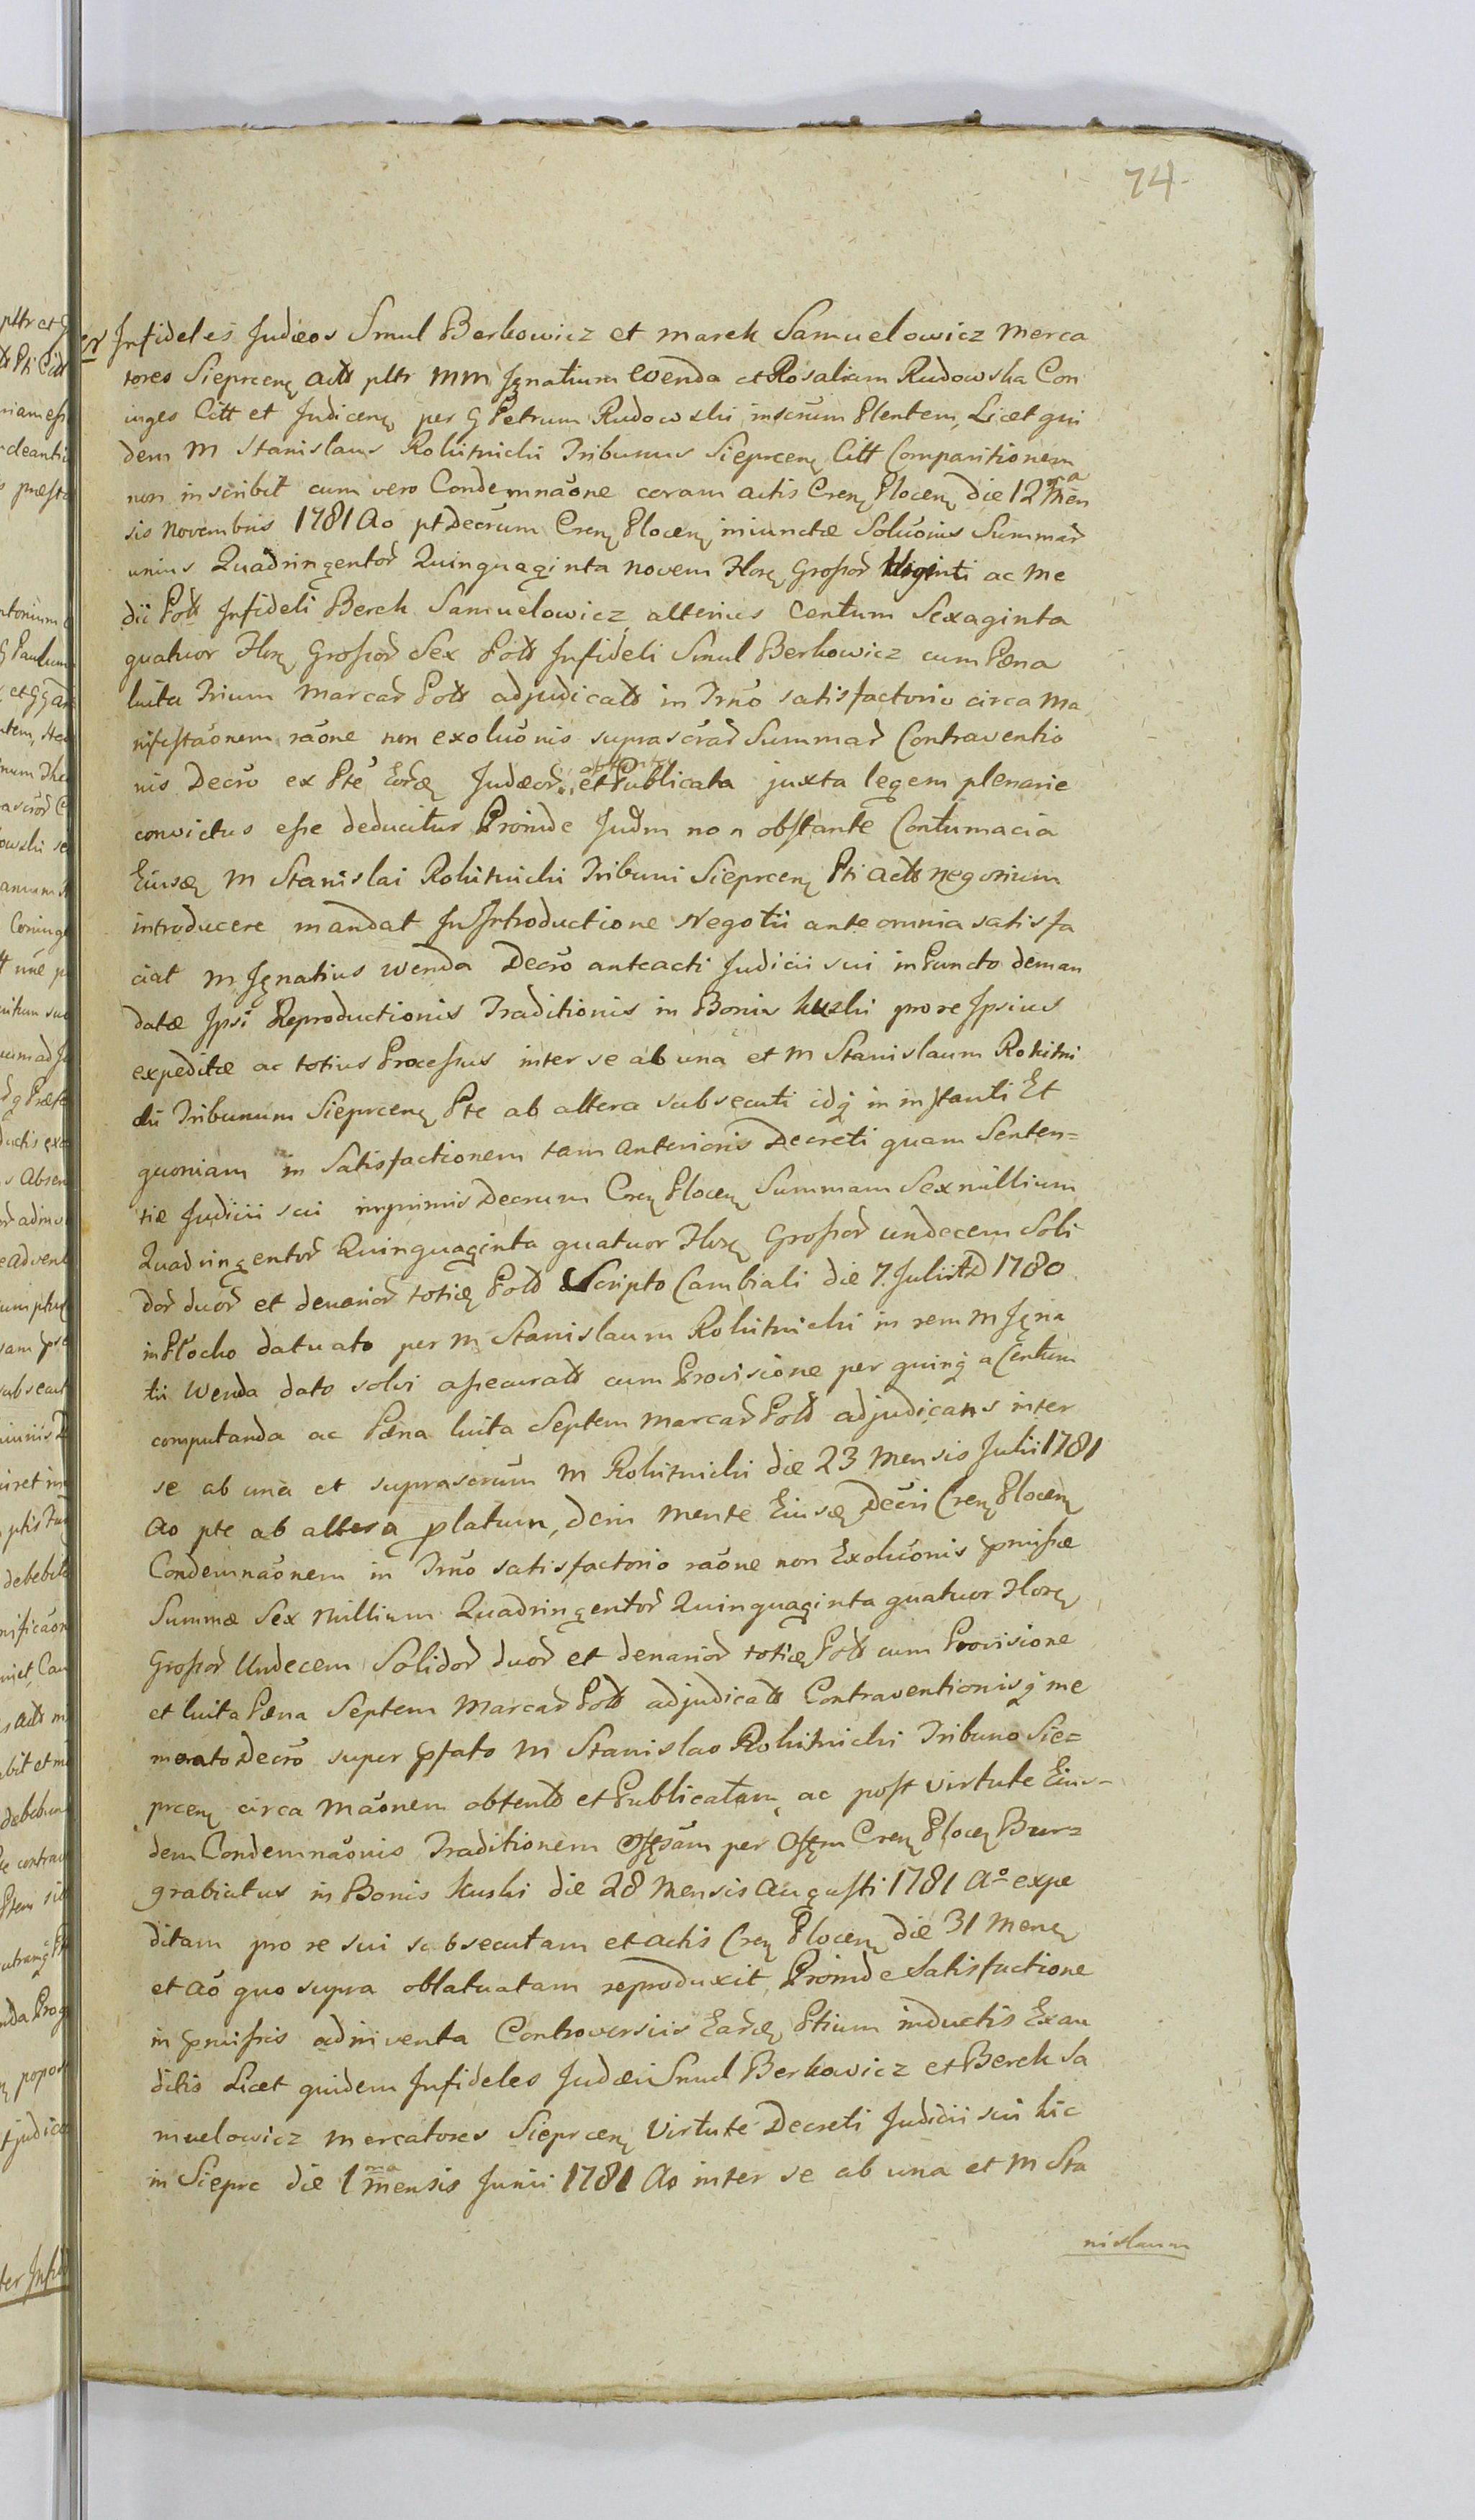 74
Infideles Judæos Smul Berkowicz et Marek Samuelowicz Merca
tores Sieprcen Actt pltr MM Ignatium Wenda et Rosaliam Rudowska Con
iuges Citt et Judicen per G Petrum Rudowski inscrum Plentem, Licet qui
dem M Stanislaus Rokitnicki Tribunus Sieprcen Citt Comparitionem
non inscribit cum vero Condemnaone coram actis Cren Plocen die 12 ma Men
sis Novembris 1781 Ao pt Decrum Cren Plocen iniunctæ Soluonis Summar
unius Quadringentor Quinquaginta novem Flor Grossor Viginti ac me
dii Poll Infideli Berek Samuelowicz alterius Centum Sexaginta
quatuor Flor Grossor Sex Poll Infideli Smul Berkowicz cum Pæna
luita Trium Marcar Poll adjudicatt in Trno satisfactorio circa Ma
nifestaonem raone non exoluonis suprascrar Summar Contraventio
nis Decro ex Pte Eord Judæor obtenta et Publicata juxta legem plenarie
convictus esse deducitur Proinde Judm non obstante Contumacia
Eiusd M Stanislai Rokitnicki Tribuni Sieprcen Pti Actt negotium
introducere mandat In Introductione Negotii ante omnia satisfa
ciat M Ignatius Wenda Decro anteacti Judicii sui in Puncto deman
datæ Ipsi Reproductionis Traditionis in Bonis kuski pro re Ipsius
expeditæ ac totius Processus inter se ab una et M Stanislaum Rokitni
cki Tribunum Sieprcen Pte ab altera subsecuti idq in instanti Et
quoniam in Satisfactionem tam anterioris Decreti quam Senten=
tiæ Judicii sui imprimis Decrum Cren Plocen Summam Sex millium
Quadringentor Quinquaginta quatuor Flor Grossor undecem Soli
dor duor et denarior totid Poll Scripto Cambiali die 7. Julii 1780
in Płocko datuato per M Stanislaum Rokitnicki in rem M Igna
tii Wenda dato solvi assecuratt cum Provisione per quinq a Centum
computanda ac Pæna luita Septem Marcar Poll adjudicans inter
se ab una et suprascrum M Rokitnicki die 23 Mensis Julii 1781
Ao pte ab altera platum, dein mente Eiusd Decri Cren Plocen
Condemnaonem in Trno satisfactorio raone non Exoluonis pmissæ
Summæ Sex Millium Quadringentor Quinquaginta quatuor Flor
Grossor Undecem Solidor duor et denarior totid Poll cum Provisione
et luita Pæna Septem Marcar Poll adjudicatt Contraventionisq me
morato Decro super pfato M Stanislao Rokitnicki Tribuno Sie=
prcen circa Maonem obtentt et Publicatam, ac post virtute Eius-
dem Condemnaonis Traditionem Offsam per Offm Cren Plocen Bur=
grabiatus in Bonis Kuski die 28 Mensis Augusti 1781 Ao expe
ditam pro re sui subsecutam et Actis Cren Plocen die 31 Mens
et Ao quo supra oblatuatam reproduxit, Proinde Satisfactione
in pmissis adinventa Controversiis Eard Ptium inductis Exau
ditis Licet quidem Infideles Judæi Smul Berkowicz et Berek Sa
muelowicz Mercatores Sieprcen Virtute Decreti Judicii sui hic
in Sieprc die 1 ma Mensis Junii 1781 Ao inter se ab una et M Sta
nislaum